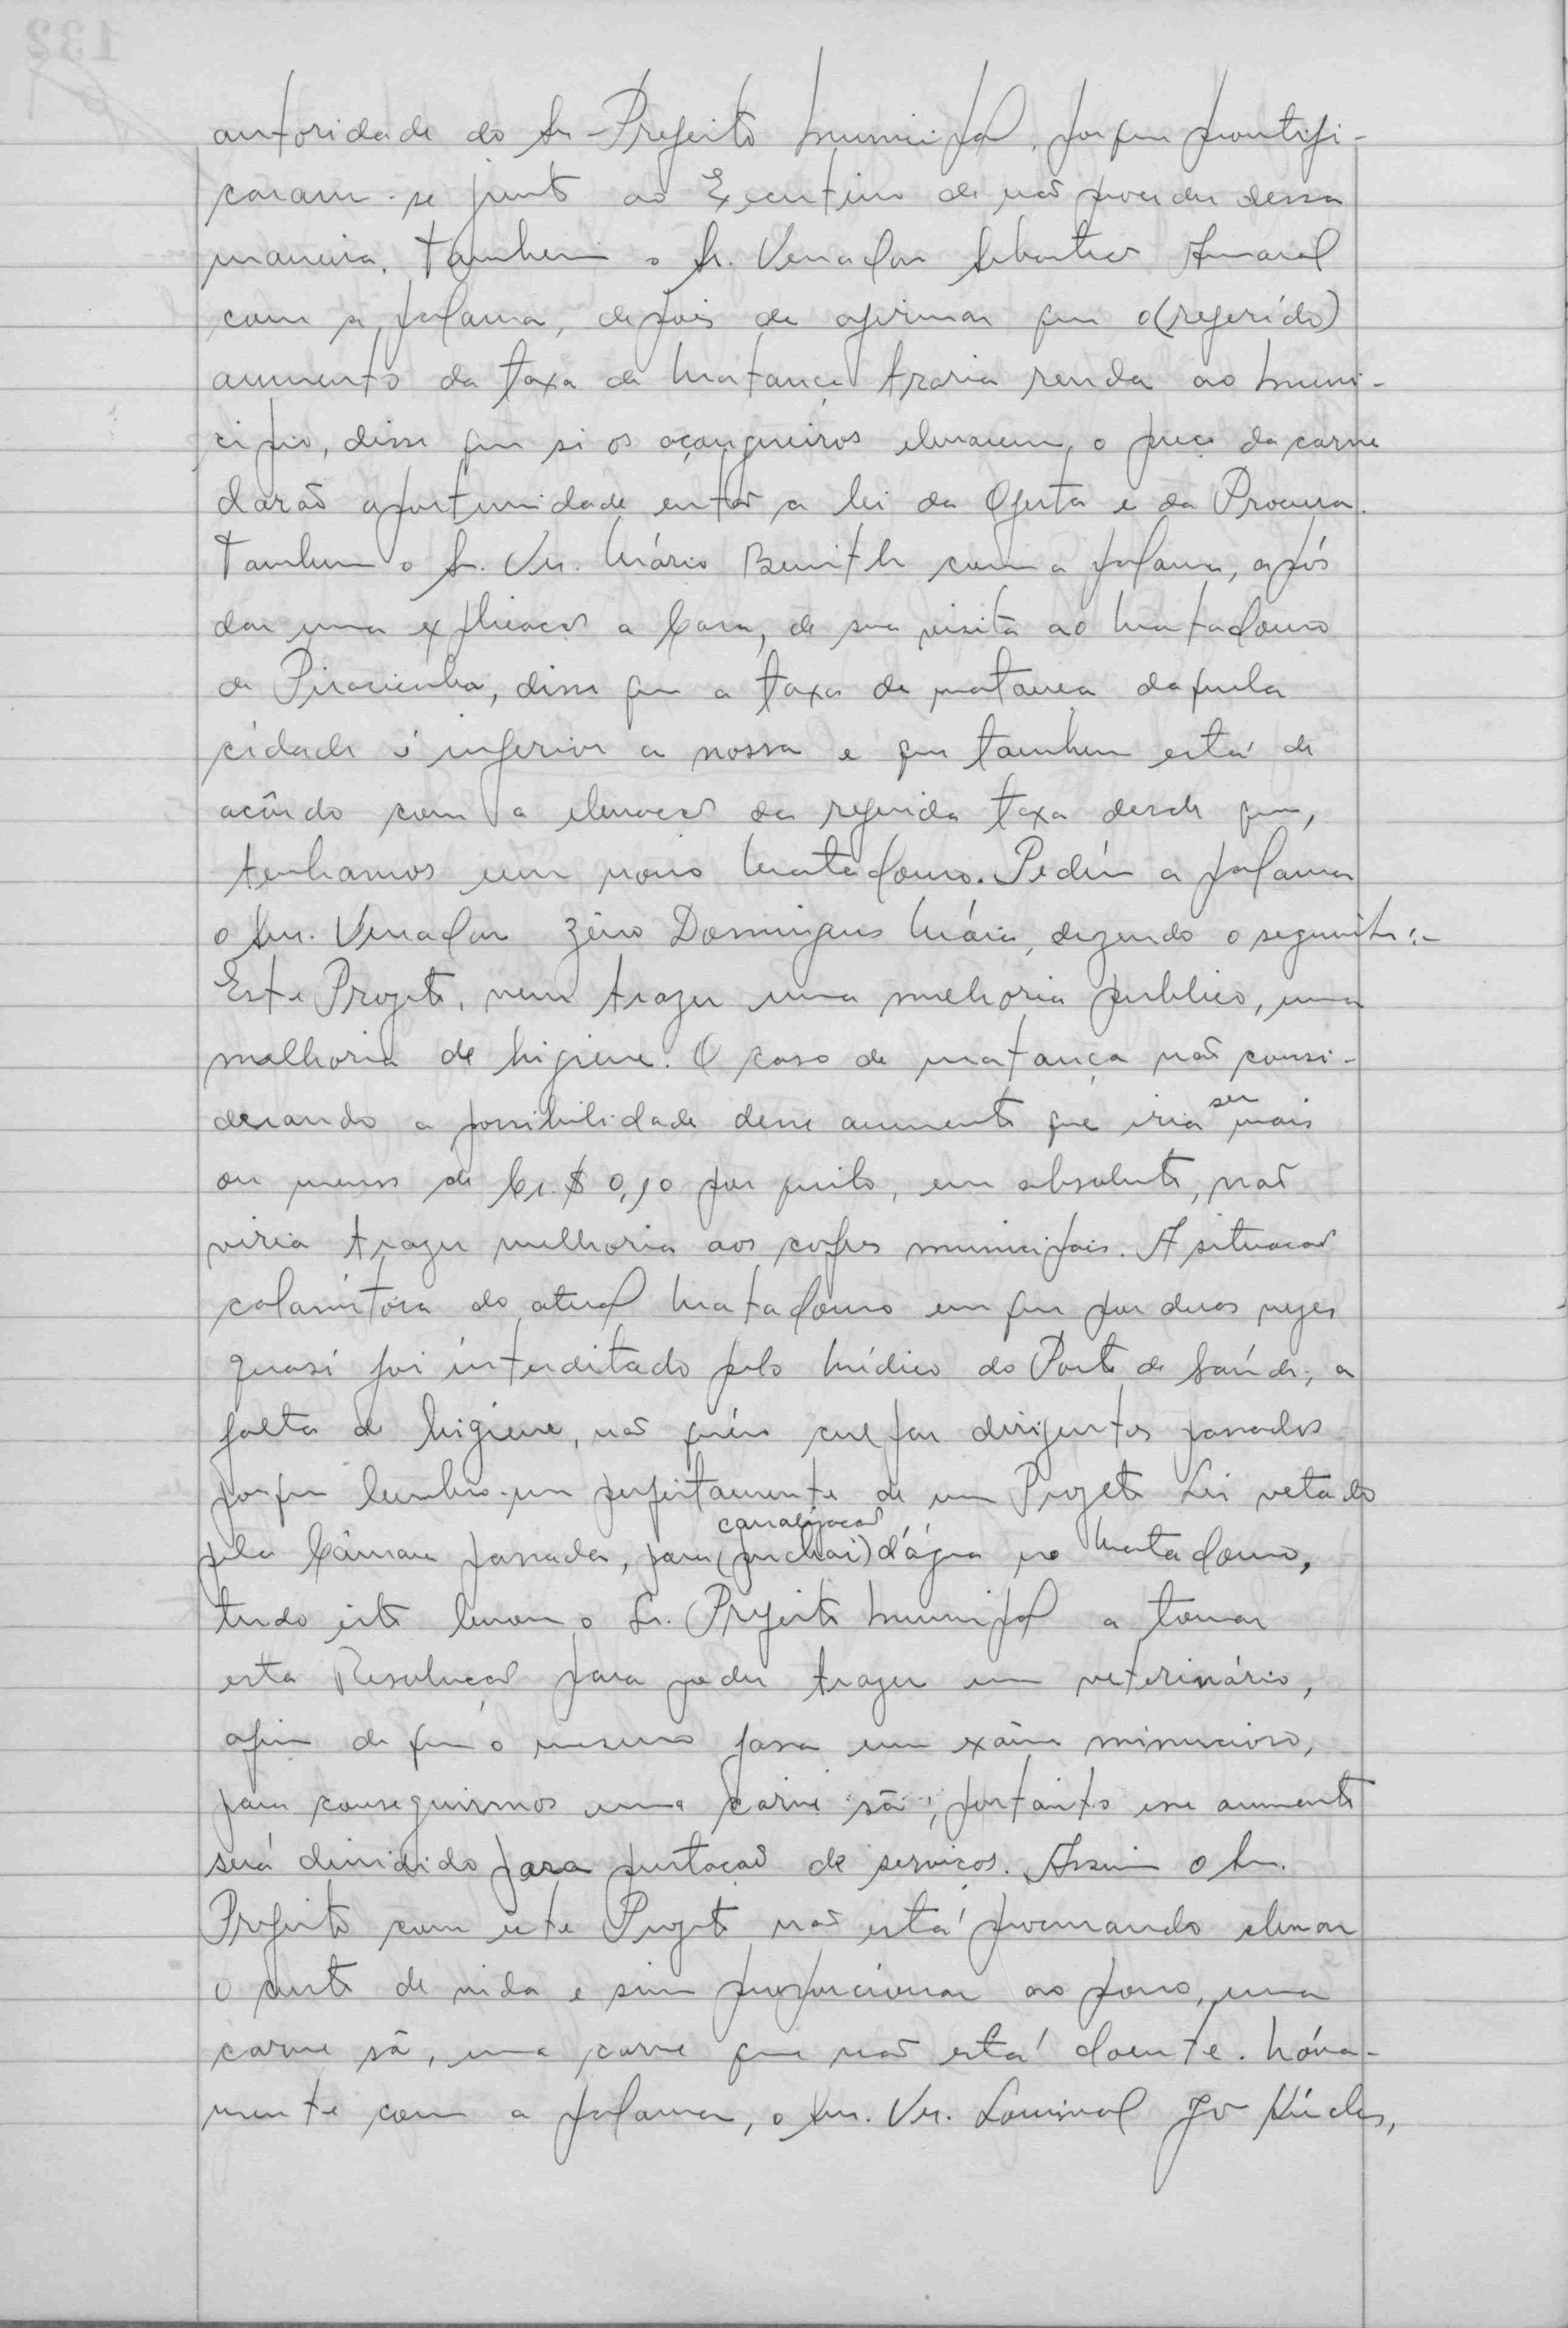 autoridade do Sr. Prefeito Municipal, porque prontifi-
caram-se junto ao Executivo de não proceder dessa
maneira. Tambem o Sr. Vereador Sebastião Amaral
com a palavra, depois de afirmar que o (referido)
aumento da taxa de Matança traria renda ao Muni-
cipio, disse que si os açougueiros elevarem o preço da carne
darão oportunidade então a lei da Oferta e da Procura.
Tambem o Sr. Ver. Mário com a palavra, após
dar uma explicação a Casa, de sua visita ao Matadouro
de Piracicaba, disse que a taxa de matança daquela
cidade é inferior a nossa e que tambem está de
acôrdo com a elevação da referida taxa desde que,
tenhamos um novo Matadouro. Pediu a palavra
o Snr. Vereador Domingues dizendo o seguinte:-
Este Projeto, vem trazer uma melhoria publica, uma
melhoria de higiene. O caso de matança não consi-
derando a possibilidade desse aumento que iria ser mais
ou menos de Cr.$ 0,10 por quilo, em absoluto, não
viria trazer melhoria aos cofres municipais. A situação
calamitosa do atual Matadouro em que por duas vezes
quasi foi interditado pelo Médico do Posto de Saúde, a
falta de higiene, não quero culpar dirigentes passados
porque lembro-me perfeitamente de um Projeto Lei vetado
pela Câmara passada, para (puchar) canalização d'água no Matadouro,
tudo isto levou o Sr. Prefeito Municipal a tomar
esta Resolução para poder trazer um veterinário,
afim de que o mesmo faça um exâme minucioso,
para conseguirmos uma carne sã, portanto esse aumento
será dividido para prestação de serviços. Assim o Sr.
Prefeito com este Projeto não está procurando elevar
o custo de vida e sim proporcionar ao povo, uma
carne sã, uma carne que não está doente. Nóva-
mente com a palavra, o Snr. Ver. Lourival